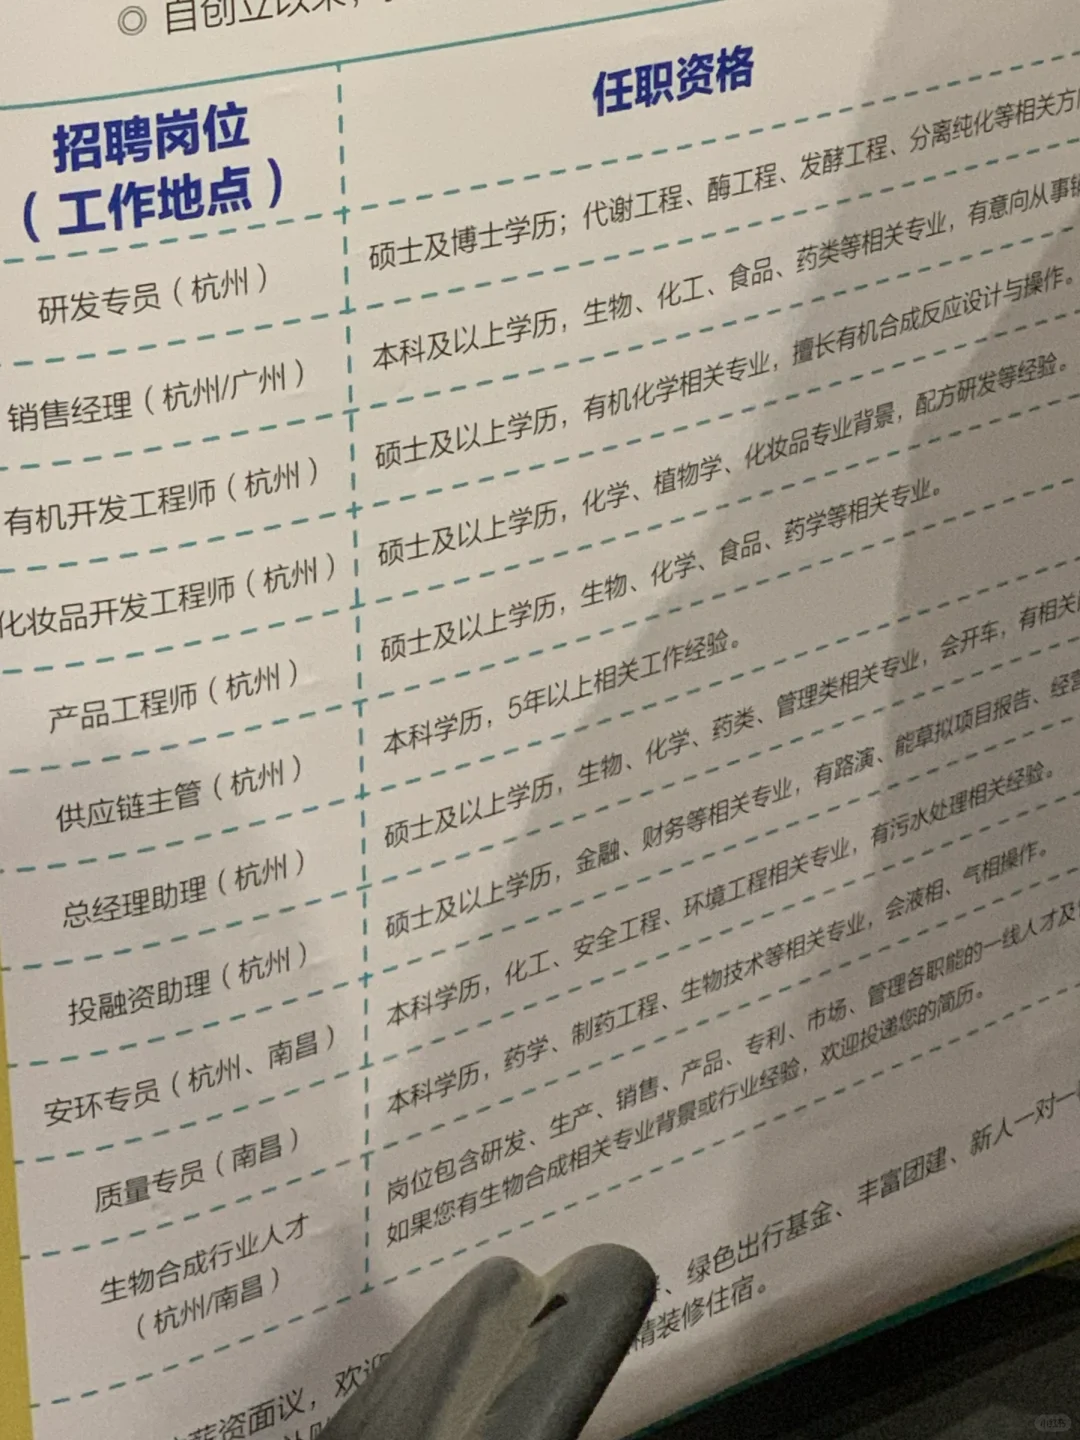 ◎ 自创立以来，
招聘岗位
（工作地点）
任职资格
研发专员（杭州）
硕士及博士学历；代谢工程、酶工程、发酵工程、分离纯化等相关方
销售经理（杭州/广州）
本科及以上学历，生物、化工、食品、药类等相关专业，有意向从事销
有机开发工程师（杭州）
硕士及以上学历，有机化学相关专业，擅长有机合成反应设计与操作。
化妆品开发工程师（杭州）
硕士及以上学历，化学、植物学、化妆品专业背景，配方研发等经验。
产品工程师（杭州）
硕士及以上学历，生物、化学、食品、药学等相关专业。
供应链主管（杭州）
本科学历，5年以上相关工作经验。
总经理助理（杭州）
硕士及以上学历，生物、化学、药类、管理类相关专业，会开车，有相关
投融资助理（杭州）
硕士及以上学历，金融、财务等相关专业，有路演、能草拟项目报告、经营
安环专员（杭州、南昌）
本科学历，化工、安全工程、环境工程相关专业，有污水处理相关经验。
质量专员（南昌）
本科学历，药学、制药工程、生物技术等相关专业，会液相、气相操作。
生物合成行业人才
（杭州/南昌）
岗位包含研发、生产、销售、产品、专利、市场、管理各职能的一线人才及
如果您有生物合成相关专业背景或行业经验，欢迎投递您的简历。
薪资面议，欢迎
、绿色出行基金、丰富团建、新人一对一
精装修住宿。